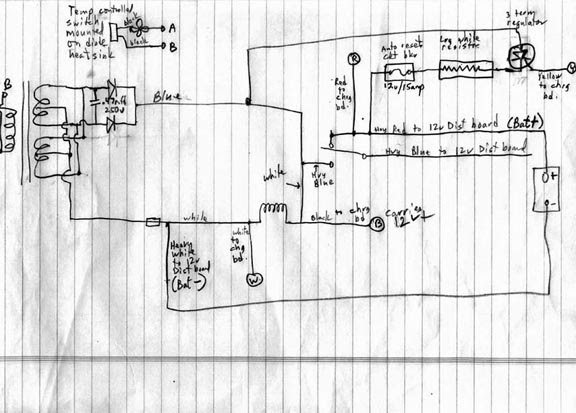 Temp controlled
switch
mounted
on diode
heatsink
black
black
A
B
B
P
.47nff
250v
Blue
3 term
regulator
Auto reset
ckt bkr
12v/15amp
Lrg white
resistor
Yellow to chrg
bd.
R
Red to
chrg
bd.
Hvy Red to 12v Dist board (Batt)
Hvy Blue to 12v Dist board
Hvy
Blue
white
+
-
white
Black to chrg
bd
B
carries
12v+
Heavy
white
to 12v
Dist board
(Bat-)
white
to
chg
bd.
W